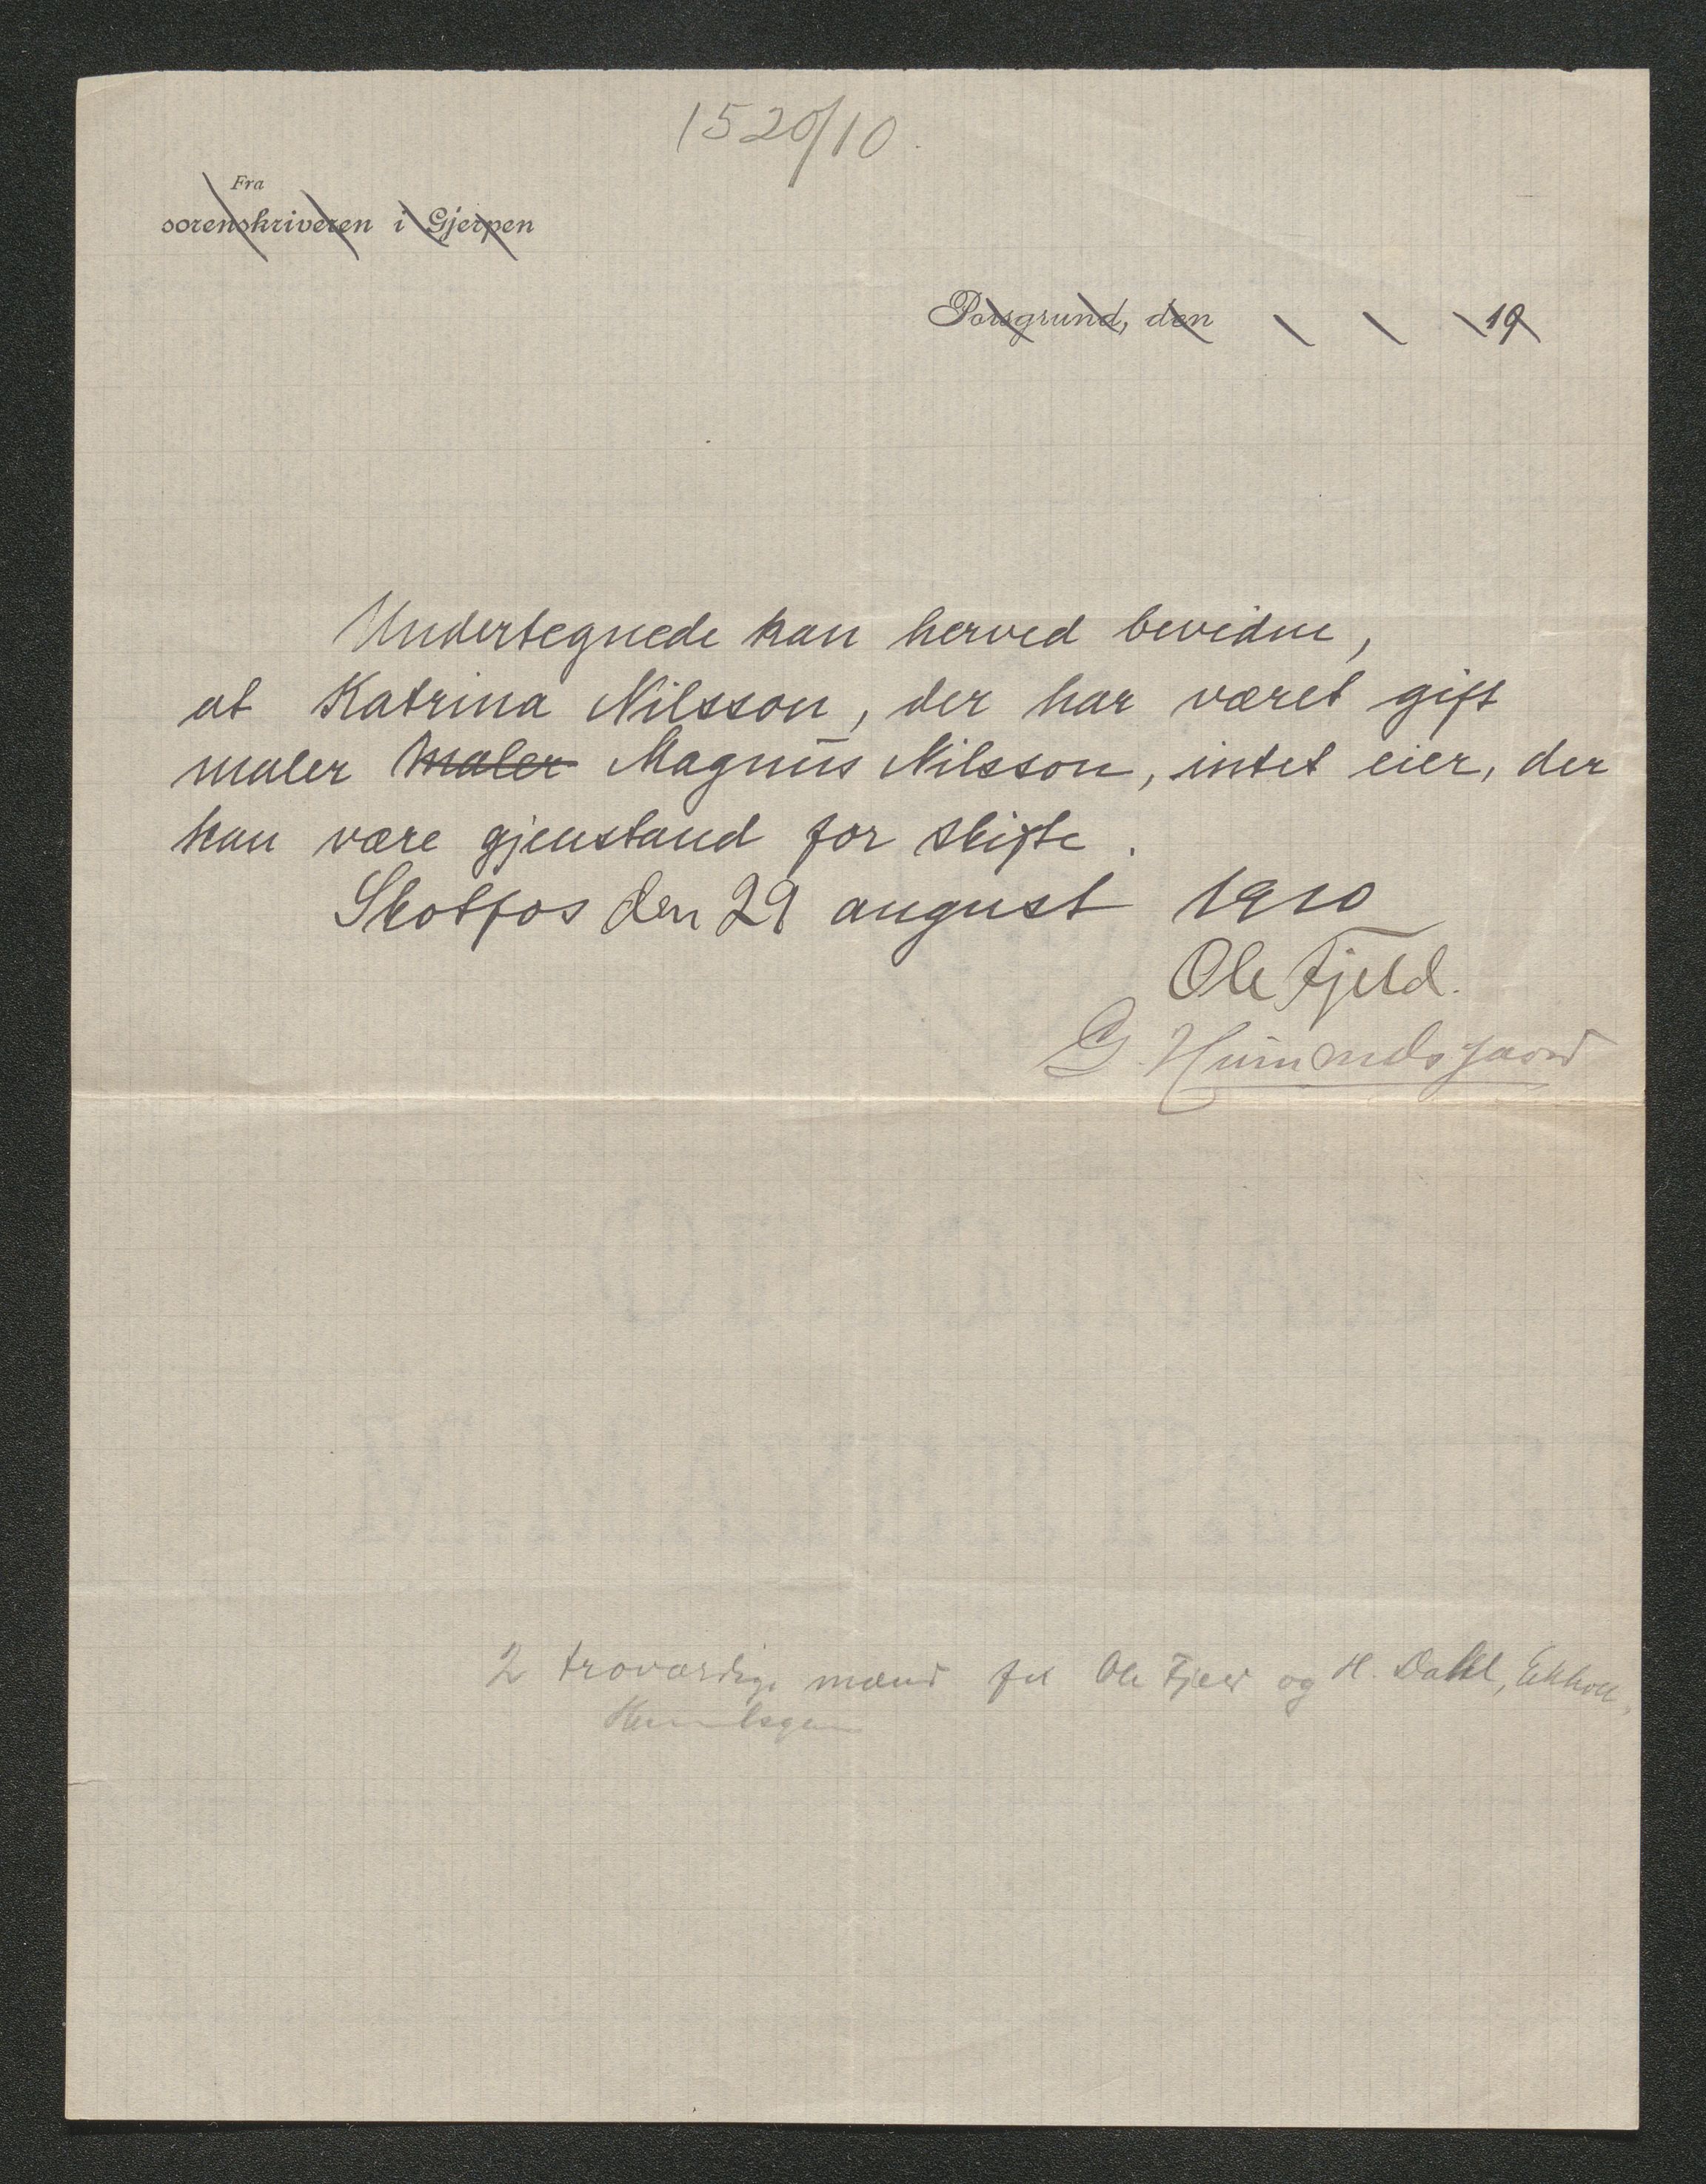 1520/10.
Fra
sorenskriveren i Gjerpen
Porsgrund, den 19
Undertegnede kan herved bevidne,
at Katrina Nilsson, der har været gift
maler maler Magnus Nilsson, intet eier, der
kan være gjenstand for skifte.
Skotfos den 29 august 1910
Ole Fjeld.
G.
2 troværdige mænd Ole Fjeld og H. Dahl,